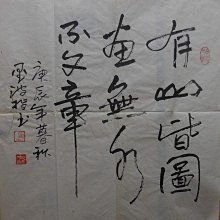 有山皆圖
畫無水
不文章
庚辰年暮秋
書